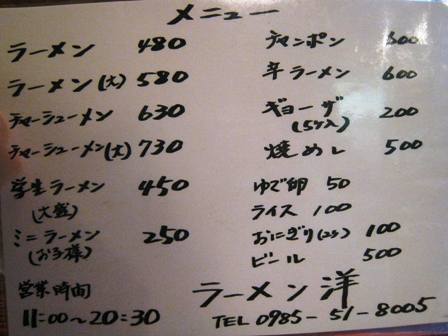 メニュー
ラーメン 480
ラーメン(大) 580
チャーシューメン 630
チャーシューメン(大) 730
学生ラーメン 450
(大盛)
ミニラーメン 250
(お子様)
営業時間
11:00〜20:30
チャンポン 600
辛ラーメン 600
ギョーザ 200
(5ケ入)
焼めし 500
ゆで卵 50
ライス 100
おにぎり(2ケ) 100
ビール 500
ラーメン 洋
TEL 0985-51-8005